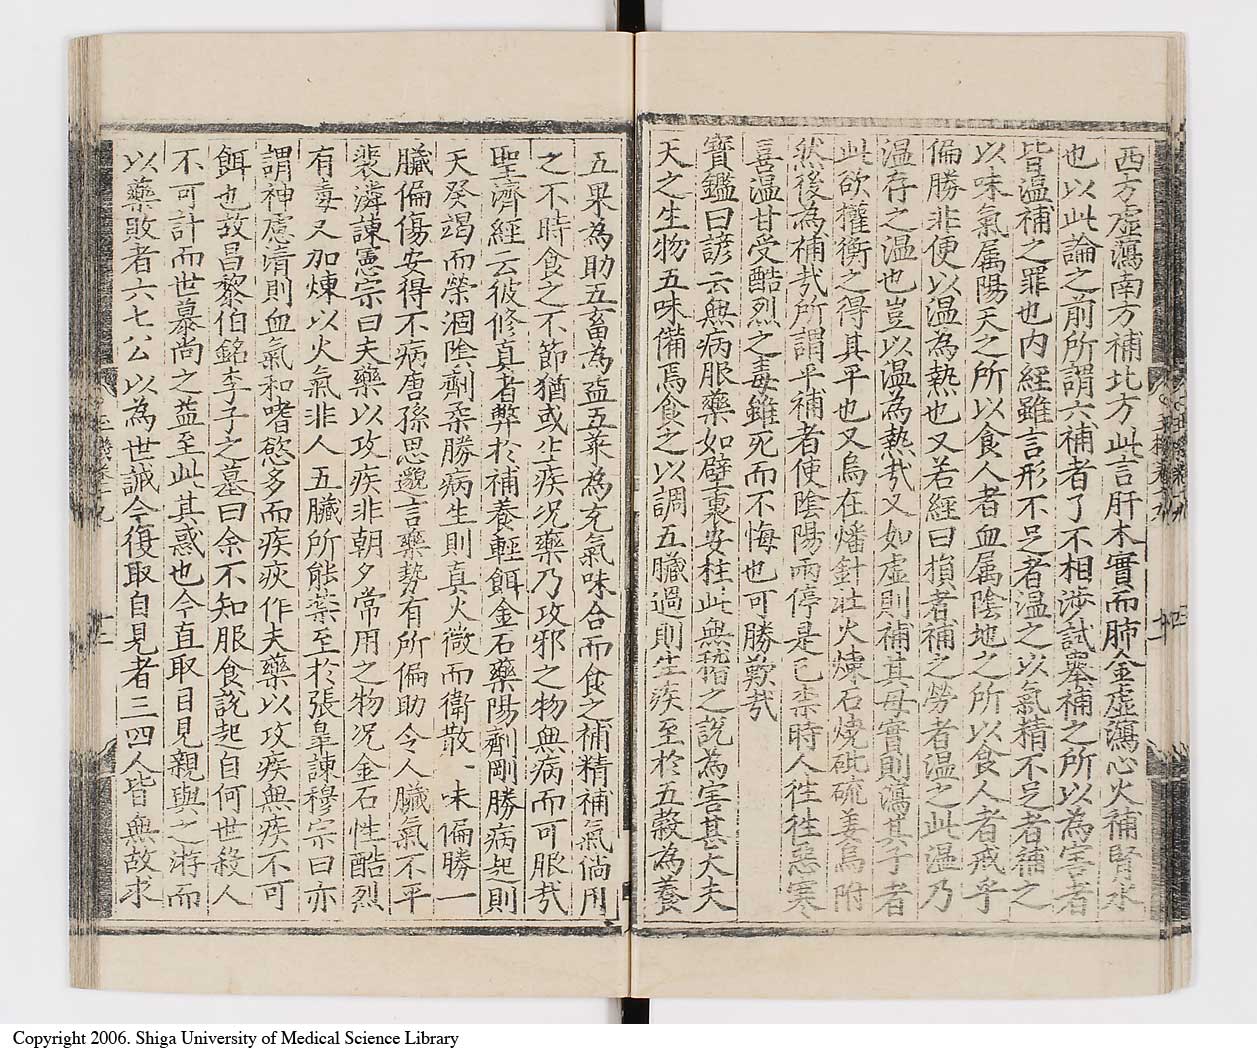 西方虛瀉南方補北方此言肝木實而肺金虛瀉心火補腎水
也以此論之前所謂六補者了不相涉試舉補之所以為害者
皆温補之罪也内經雖言形不足者温之以氣精不足者補之
以味氣屬陽天之所以食人者血屬陰地之所以食人者戒乎
偏勝非便以温為熱也又若經曰損者補之勞者温之此温乃
温存之温也豈以温為熱哉又如虛則補其母實則瀉其子者
此欲權衡之得其平也又烏在燔針壮火煉石燒砒硫姜烏附
然後為補哉所謂平補者使陰陽兩停是已柰時人往往惡寒
喜温甘受酷烈之毒雖死而不悔也可勝歎哉
寶鑑曰諺云無病服藥如壁裏安柱此無稽之說為害甚大夫
天之生物五味備焉食之以調五臟過則生疾至於五穀為養
五果為助五畜為益五菜為充氣味合而食之補精補氣倘用
之不時食之不節猶或生疾况藥乃攻邪之物無病而可服哉
聖濟經云彼修真者弊於補養輕餌金石藥陽劑剛勝病起則
天癸竭而榮涸陰劑柔勝病生則真火微而衛散一味偏勝一
臟偏傷安得不病唐孫思邈言藥勢有所偏助令人臟氣不平
裴潾諫憲宗曰夫藥以攻疾非朝夕常用之物况金石性酷烈
有毒又加煉以火氣非人五臟所能禁至於張臯諫穆宗曰亦
謂神慮清則血氣和嗜慾多而疾疢作夫藥以攻疾無疾不可
餌也故昌黎伯銘李子之墓曰余不知服食說起自何世殺人
不可計而世慕尚之益至此其惑也今直取目見親與之游而
以藥敗者六七公以為世誡今復取自見者三四人皆無故求
Copyright 2006. Shiga University of Medical Science Library